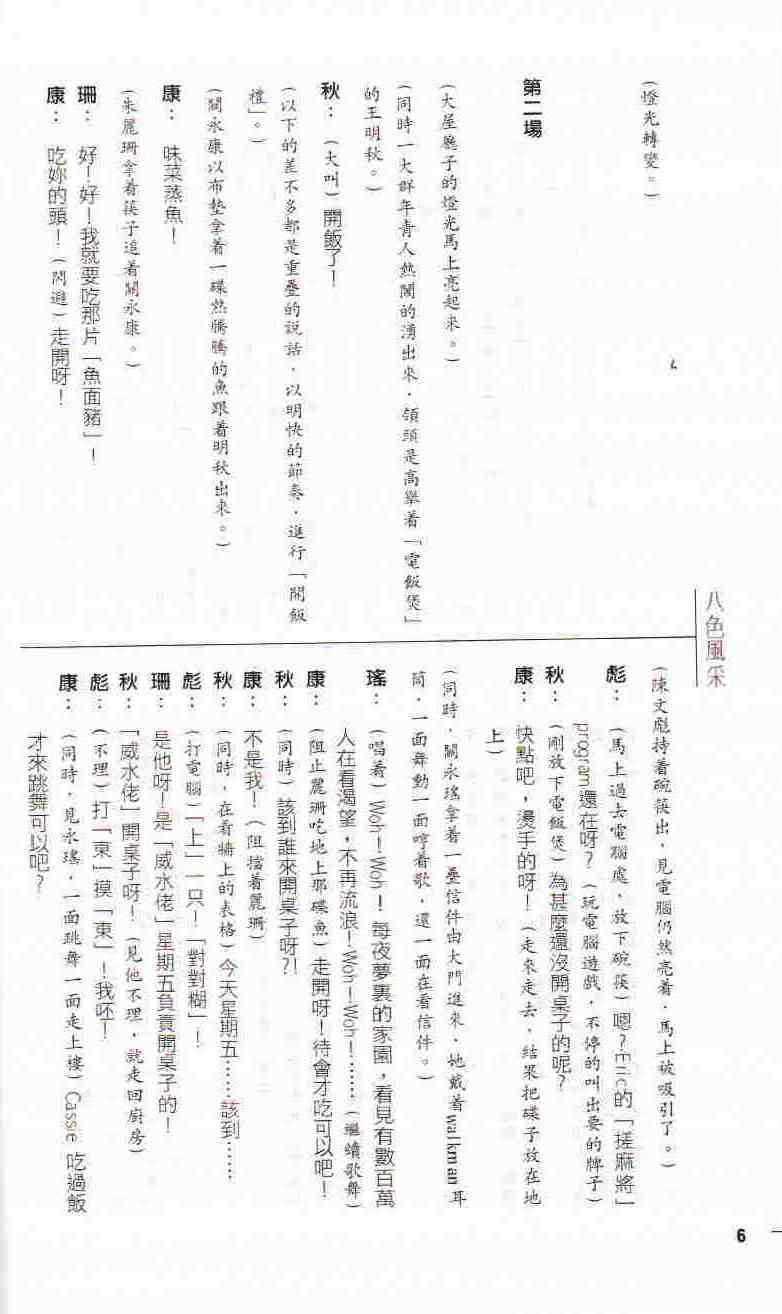 八色風采
（燈光轉變。）
第二場
（大屋廳子的燈光馬上亮起來。）
（同時一大群年青人熱鬧的湧出來，領頭是高舉着「電飯煲」
的王明秋。）
秋：（大叫）開飯了！
（以下的差不多都是重疊的說話，以明快的節奏，進行「開飯
禮」。）
（關永康以布墊拿着一碟熱騰騰的魚跟着明秋出來。）
康：味菜蒸魚！
（朱麗珊拿着筷子追着關永康。）
珊：好！好！我就要吃那片「魚面豬」！
康：吃妳的頭！（閃避）走開呀！
（陳文彪持着碗筷出，見電腦仍然亮着，馬上被吸引了。）
彪：（馬上過去電腦處，放下碗筷）嗯？Eric的「搓麻將」
program還在呀？（玩電腦遊戲，不停的叫出要的牌子）
秋：（剛放下電飯煲）為甚麼還沒開桌子的呢？
康：快點吧，燙手的呀！（走來走去，結果把碟子放在地
上）
（同時，關永瑤拿着一疊信件由大門進來，她戴着walkman耳
筒，一面舞動一面哼着歌，還一面在看信件。）
瑤：（唱着）Woh！Woh！每夜夢裏的家園，看見有數百萬
人在看渴望，不再流浪！Woh！Woh！……（繼續歌舞）
康：（阻止麗珊吃地上那碟魚）走開呀！待會才吃可以吧！
秋：（同時）該到誰來開桌子呀？！
康：不是我！（阻擋着麗珊）
秋：（同時，在看牆上的表格）今天星期五……該到……
彪：（打電腦）「上」一只！「對對糊」！
珊：是他呀！是「威水佬」星期五負責開桌子的！
秋：「威水佬」開桌子呀！（見他不理，就走回廚房）
彪：（不理）打「東」摸「東」！我呸！
康：（同時，見永瑤，一面跳舞一面走上樓）Cassie 吃過飯
才來跳舞可以吧？
6